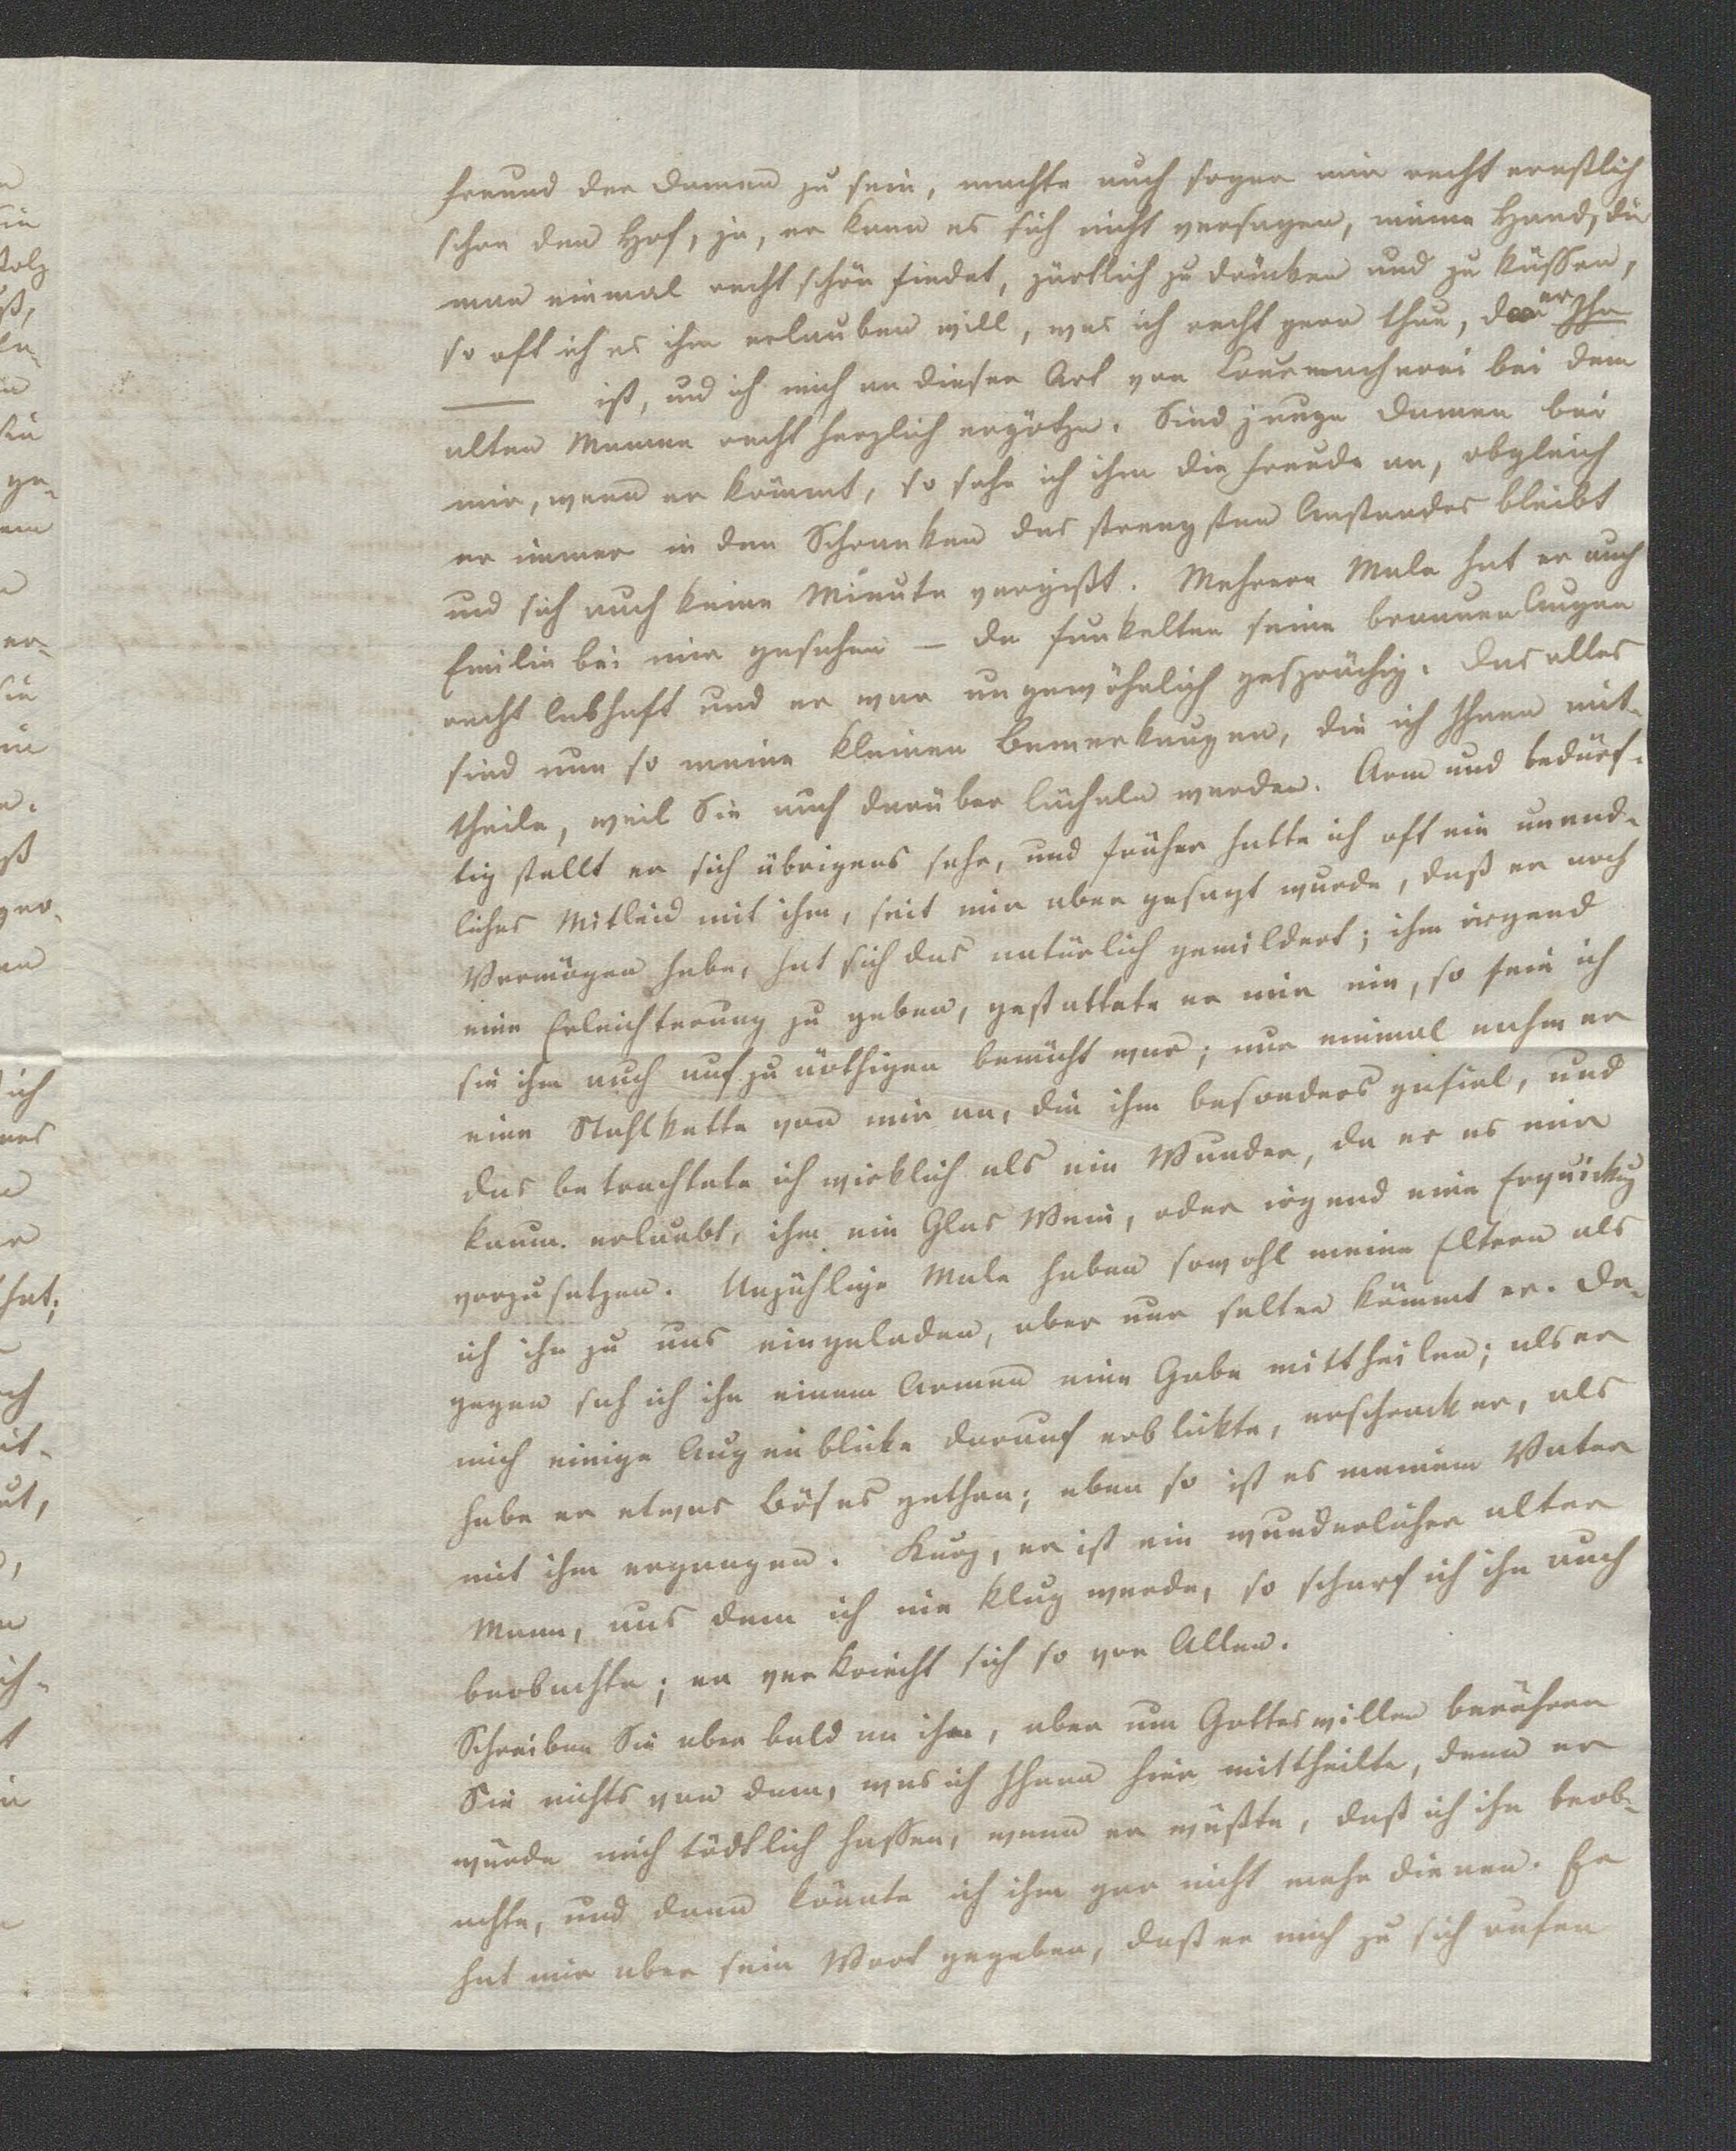 Freund der Damen zu sein, machte auch sogar mir recht ernstlich
schon den Hof, ja, er kann es sich nicht versagen, meine Hand, die
man einmal recht schön findet, zärtlich zu drücken und zu küssen,
so oft ich es ihm erlauben will, was ich recht gern thue, da er Ihr
ist, und ich mich an dieser Art von Courmacherei bei dem
alten Manne recht herzlich ergötze. Sind junge Damen bei
mir, wenn er kömmt, so sehe ich ihm die Freude an, obgleich
er immer in den Schranken des strengsten Anstandes bleibt
und sich auch keine Minute vergißt. Mehrere Male hat er auch
Emilie bei mir gesehen – da funkelten seine braunen Augen
recht lebhaft und er war ungewöhnlich gesprächig. Das alles
sind nun so meine kleinen Bemerkungen, die ich Ihnen mit-
theile, weil Sie auch darüber lächeln werden. Arm und bedürf-
tig stellt er sich übrigens sehr, und früher hatte ich oft ein unend-
liches Mitleid mit ihm, seit mir aber gesagt wurde, daß er noch
Vermögen habe, hat sich das natürlich gemildert; ihm irgend
eine Erleichterung zu geben, gestattete er mir nie, so fein ich
sie ihm auch aufzunöthigen bemüht war; nur einmal nahm er
eine Stahlkette von mir an, die ihm besonders gefiel, und
das betrachtete ich wirklich als ein Wunder, da er es mir
kaum erlaubt, ihm ein Glas Wein, oder irgend eine Erquickg
vorzusetzen. Unzählige Male haben sowohl meine Eltern als
ich ihn zu uns eingeladen, aber nur selten kömmt er. Da-
gegen sah ich ihn einem Armen eine Gabe mittheilen; als er
mich einige Augenblicke darauf erblickte, erschrack er, als
habe er etwas Böses gethan; eben so ist es meinem Vater
mit ihm ergangen. Kurz, er ist ein wunderlicher alter
Mann, aus dem ich nie klug werde, so scharf ich ihn auch
beobachte; er verkriecht sich so vor Allen.
Schreiben Sie aber bald an ihn, aber um Gotteswillen berühren
Sie nichts von dem, was ich Ihnen hier mittheilte, denn er
würde mich tödtlich hassen, wenn er wüßte, daß ich ihn beob-
achte, und dann könnte ich ihm gar nicht mehr dienen. Er
hat mir aber sein Wort gegeben, daß er mich zu sich rufen